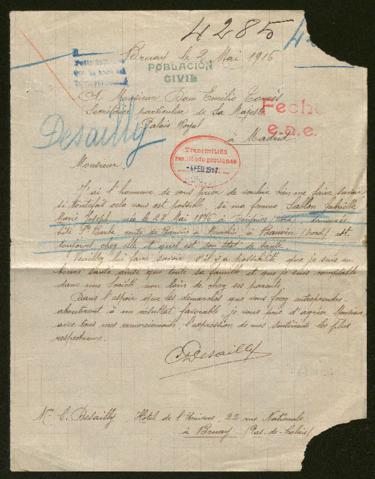 4285
Bruay, le 2 Mai 1916
POBLACIÓN
CIVIL
A Monsieur Don Emilio Torrès
Secrétaire particulier de Sa Majesté
Palais Royal
à Madrid
Fecho
e.n.e.
Desailly
Transmitido
Monsieur,
J'ai l'honneur de vous prier de vouloir bien me faire savoir
si toutefois cela vous est possible, si ma femme Sallon Gabrielle
Marie Joseph, née le 28 Mai 1876 à (Nord), demeurant
à Beuvrin (Nord) est
toujours chez elle et quel est son état de santé.
Veuillez lui faire savoir, s'il y a possibilité que je suis en
bonne santé ainsi que toute sa famille et que je suis comptable
dans une Société non loin de chez ses parents.
Dans l'espoir que les démarches que vous ferez entreprendre
aboutiront à un résultat favorable je vous prie d'agréer Monsieur,
avec tous mes remerciements, l'expression de mes sentiments les plus
respectueux.
Desailly
Mr C. Desailly Hôtel de l'Univers 22 rue Nationale
à Bruay (Pas-de-Calais)